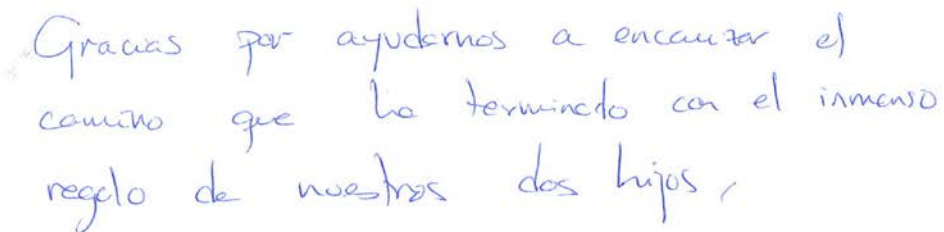 Gracias por ayudarnos a encauzar el
camino que ha terminado con el inmenso
regalo de nuestros dos hijos,